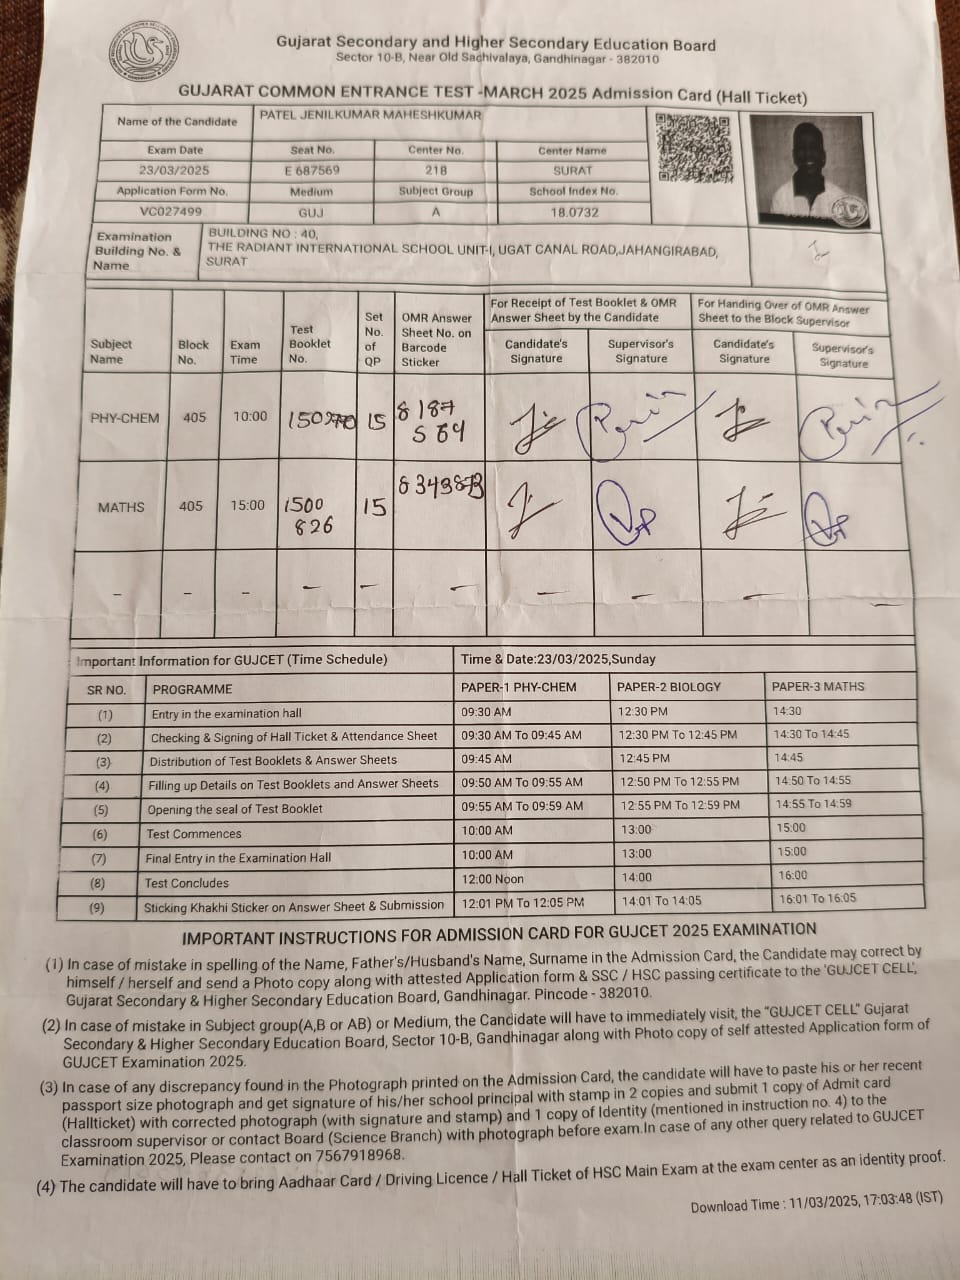 Gujarat Secondary and Higher Secondary Education Board
Sector 10-B, Near Old Sachivalaya, Gandhinagar - 382010
GUJARAT COMMON ENTRANCE TEST -MARCH 2025 Admission Card (Hall Ticket)
Name of the Candidate PATEL JENILKUMAR MAHESHKUMAR
Exam Date Seat No. Center No. Center Name
23/03/2025 E 687569 218 SURAT
Application Form No. Medium Subject Group School Index No.
VC027499 GUJ A 18.0732
Examination Building No. & Name
BUILDING NO : 40,
THE RADIANT INTERNATIONAL SCHOOL UNIT-I, UGAT CANAL ROAD,JAHANGIRABAD,
SURAT
Subject Name Block No. Exam Time Test Booklet No. Set No. of QP OMR Answer Sheet No. on Barcode Sticker
For Receipt of Test Booklet & OMR Answer Sheet by the Candidate
For Handing Over of OMR Answer Sheet to the Block Supervisor
Candidate's Signature Supervisor's Signature Candidate's Signature Supervisor's Signature
PHY-CHEM 405 10:00 15 8187
564
MATHS 405 15:00 1500 15
826
- - - - - - - - - -
Important Information for GUJCET (Time Schedule) Time & Date:23/03/2025,Sunday
SR NO. PROGRAMME PAPER-1 PHY-CHEM PAPER-2 BIOLOGY PAPER-3 MATHS
(1) Entry in the examination hall 09:30 AM 12:30 PM 14:30
(2) Checking & Signing of Hall Ticket & Attendance Sheet 09:30 AM To 09:45 AM 12:30 PM To 12:45 PM 14:30 To 14:45
(3) Distribution of Test Booklets & Answer Sheets 09:45 AM 12:45 PM 14:45
(4) Filling up Details on Test Booklets and Answer Sheets 09:50 AM To 09:55 AM 12:50 PM To 12:55 PM 14:50 To 14:55
(5) Opening the seal of Test Booklet 09:55 AM To 09:59 AM 12:55 PM To 12:59 PM 14:55 To 14:59
(6) Test Commences 10:00 AM 13:00 15:00
(7) Final Entry in the Examination Hall 10:00 AM 13:00 15:00
(8) Test Concludes 12:00 Noon 14:00 16:00
(9) Sticking Khakhi Sticker on Answer Sheet & Submission 12:01 PM To 12:05 PM 14:01 To 14:05 16:01 To 16:05
IMPORTANT INSTRUCTIONS FOR ADMISSION CARD FOR GUJCET 2025 EXAMINATION
(1) In case of mistake in spelling of the Name, Father's/Husband's Name, Surname in the Admission Card, the Candidate may correct by
himself / herself and send a Photo copy along with attested Application form & SSC / HSC passing certificate to the 'GUJCET CELL',
Gujarat Secondary & Higher Secondary Education Board, Gandhinagar. Pincode - 382010.
(2) In case of mistake in Subject group(A,B or AB) or Medium, the Candidate will have to immediately visit, the "GUJCET CELL" Gujarat
Secondary & Higher Secondary Education Board, Sector 10-B, Gandhinagar along with Photo copy of self attested Application form of
GUJCET Examination 2025.
(3) In case of any discrepancy found in the Photograph printed on the Admission Card, the candidate will have to paste his or her recent
passport size photograph and get signature of his/her school principal with stamp in 2 copies and submit 1 copy of Admit card
(Hallticket) with corrected photograph (with signature and stamp) and 1 copy of Identity (mentioned in instruction no. 4) to the
classroom supervisor or contact Board (Science Branch) with photograph before exam.In case of any other query related to GUJCET
Examination 2025, Please contact on 7567918968.
(4) The candidate will have to bring Aadhaar Card / Driving Licence / Hall Ticket of HSC Main Exam at the exam center as an identity proof.
Download Time : 11/03/2025, 17:03:48 (IST)